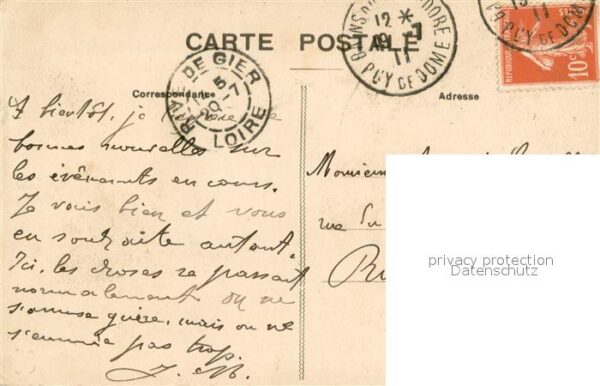 CARTE POSTALE
Correspondance
Adresse
DE GIER
5
20-7
LOIRE
12
19-7
11
PUY DE DOME
11
PUY DE DOME
10c
A bientôt, je
bonnes nouvelles sur
les évènements en cours.
Je vais bien et vous
en souhaite autant.
Ici, les choses se passent
normalement on ne
s'amuse guère, mais on ne
s'ennuie pas trop.
Monsieur
rue du
privacy protection
Datenschutz